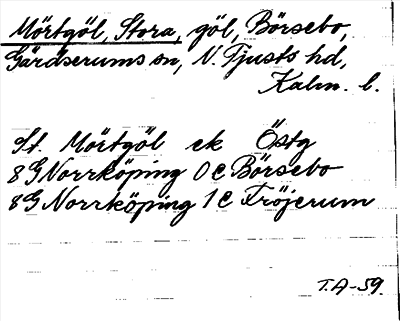 Mörtgöl, Stora, göl, Börsebo,
Gärdserums sn, N. Tjusts hd,
Kalm. l.
St. Mörtgöl ek Östg
8G Norrköping 0c Börsebo
8G Norrköping 1c Fröjerum
T.A-59.